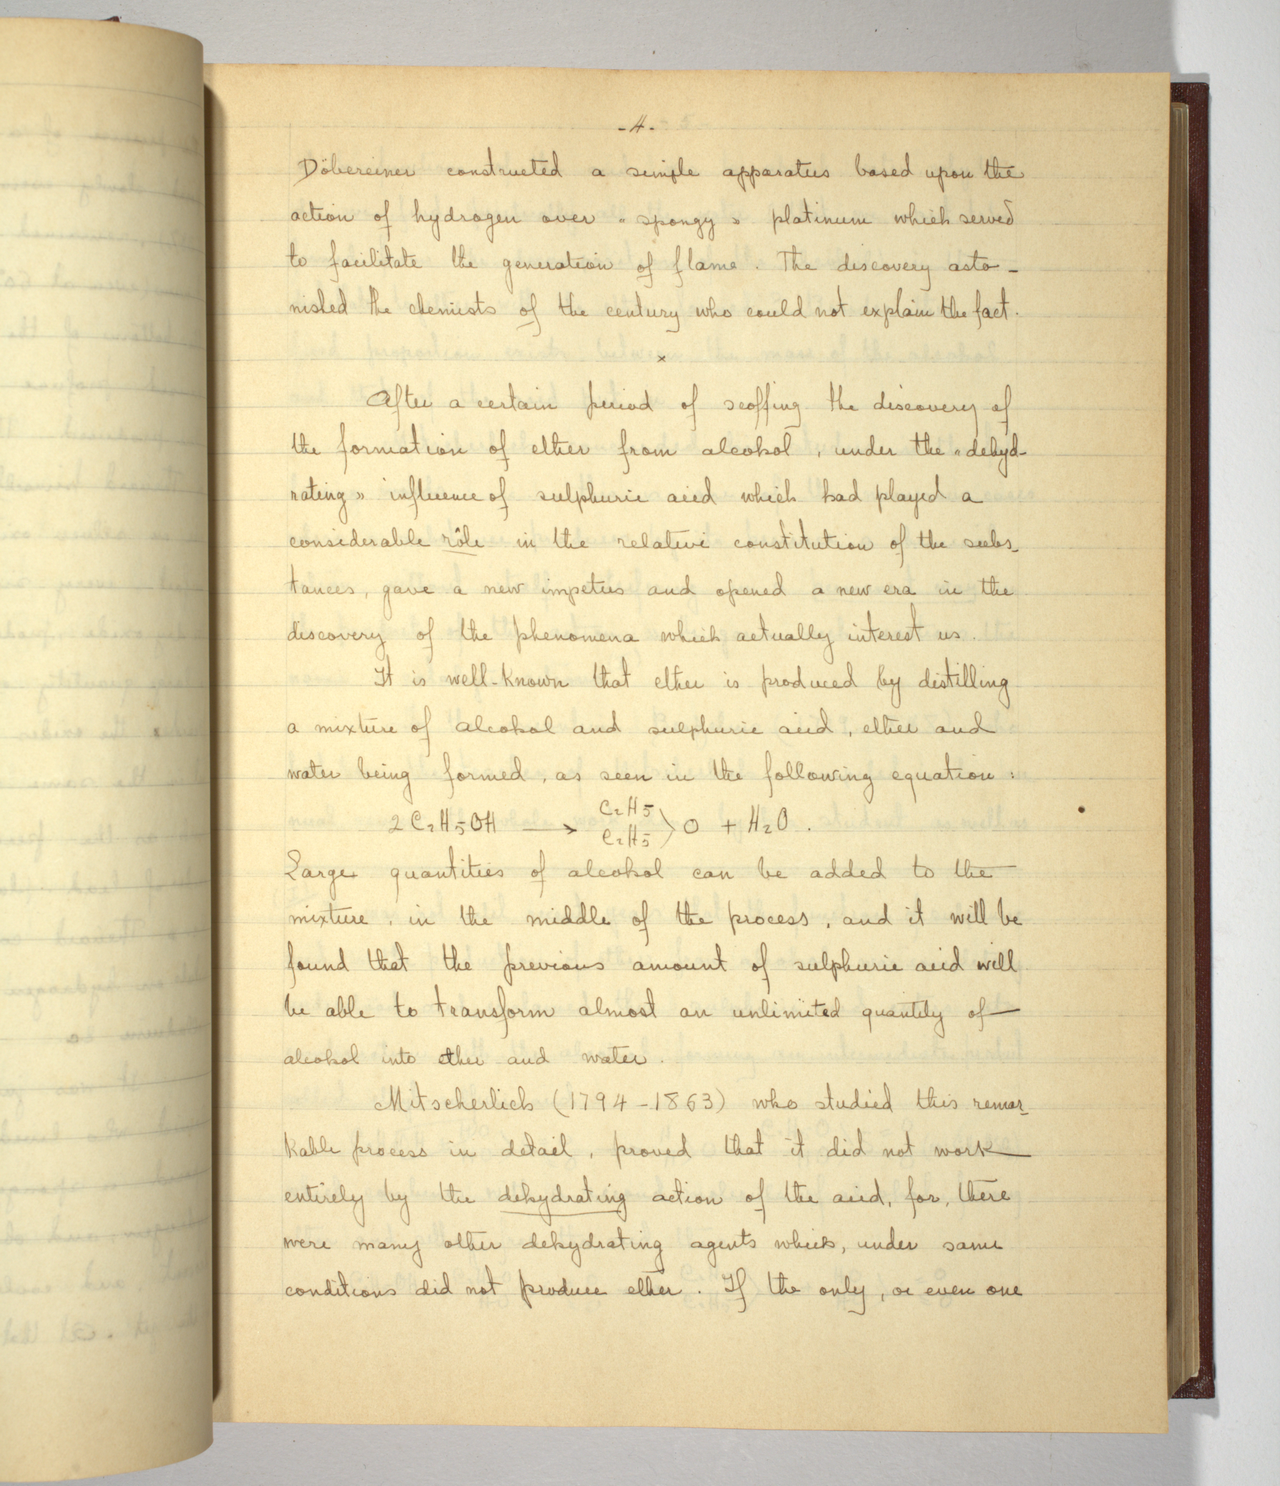 -4-
Döbereiner constructed a simple apparatus based upon the
action of hydrogen over « spongy » platinum which served
to facilitate the generation of flame. The discovery asto-
nished the chemists of the century who could not explain the fact.
×
After a certain period of scoffing the discovery of
the formation of ether from alcohol, under the « dehyd-
rating » influence of sulphuric acid which had played a
considerable rôle in the relative constitution of the subs-
tances, gave a new impetus and opened a new era in the
discovery of the phenomena which actually interest us.
It is well-known that ether is produced by distilling
a mixture of alcohol and sulphuric acid, ether and
water being formed, as seen in the following equation:
2 C₂H₅OH → C₂H₅ C₂H₅ > O + H₂O.
Large quantities of alcohol can be added to the
mixture, in the middle of the process, and it will be
found that the previous amount of sulphuric acid will
be able to transform almost an unlimited quantity of
alcohol into ether and water.
Mitscherlich (1794-1863) who studied this remar-
kable process in detail, proved that it did not work
entirely by the dehydrating action of the acid, for, there
were many other dehydrating agents which, under same
conditions did not produce ether. If the only, or even one